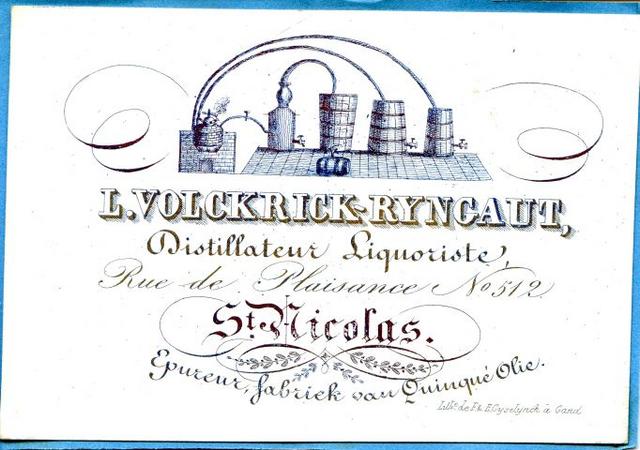 L. VOLCKRICK-RYNGAUT,
Distillateur Liquoriste,
Rue de Plaisance No 512
St. Nicolas.
Epureur, fabriek van Quinqué Olie.
Lith. de F. & E. Gyselynck à Gand